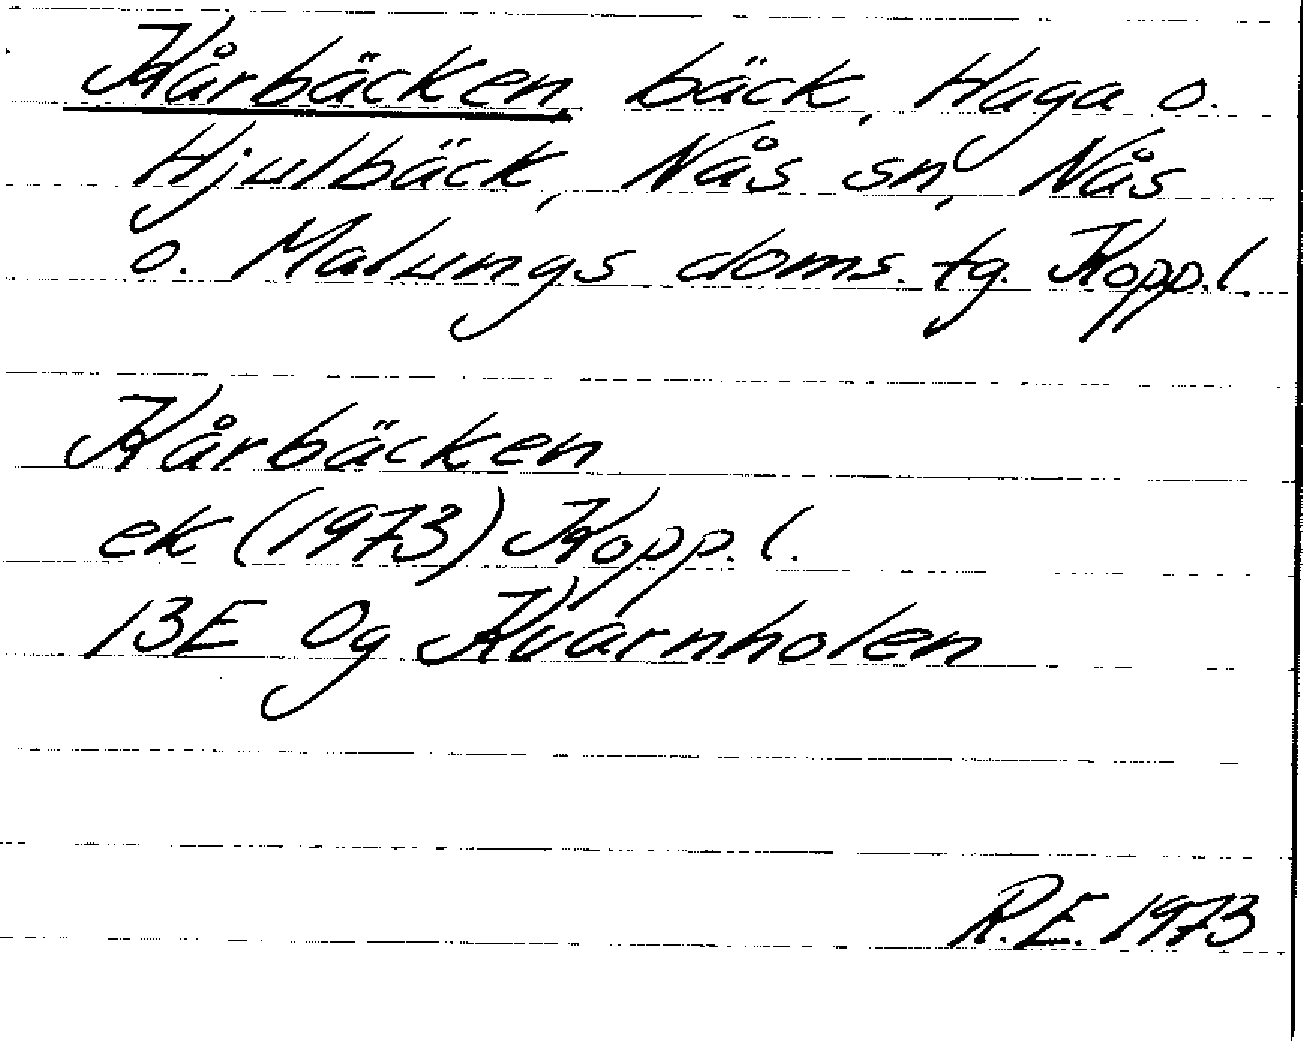 Kårbäcken, bäck, Haga o.
Hjulbäck, Nås sn, Nås
o. Malungs doms. tg. Kopp.l.
Kårbäcken
ek (1973) Kopp.l.
13E 0g Kvarnholen
R.E. 1973